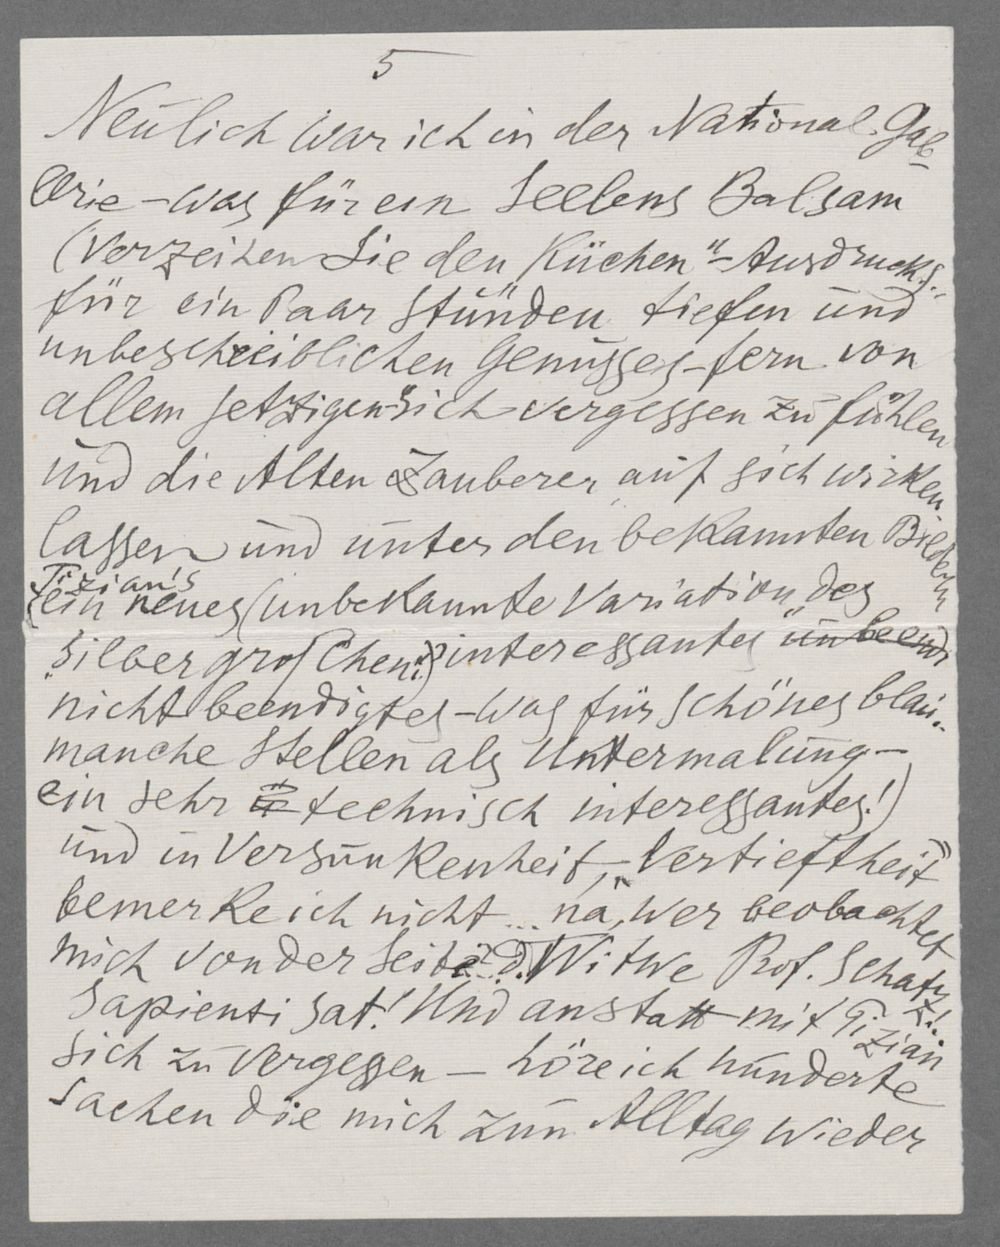 5
Neulich war ich in der National-Gal-
lerie – was für ein Seelens Balsam
(Verzeihen Sie den Küchen"-Ausdruck)..
für ein Paar Stunden tiefen und
unbeschreiblichen Genusses – fern von
allem jetzigen sich vergessen zu fühlen
und die Alten Zauberer auf sich wirken
lassen und unter den bekannten Bildern
Tizian's
(ein neues (unbekannte Variation des
"Silbergroschens") interessantes unbeend
nicht beendigtes – was für schönes blau..
manche Stellen als Untermalung –
ein sehr technisch interessantes!)
und in Versunkenheit, – Vertieftheit
bemerke ich nicht ... na, wer beobachtet
mich von der Seite ?.. d. Witwe Prof. Schatz!..
Sapienti sat! Und anstatt mit Tizian
sich zu vergessen – höre ich hunderte
Sachen die mich zum Alltag wieder